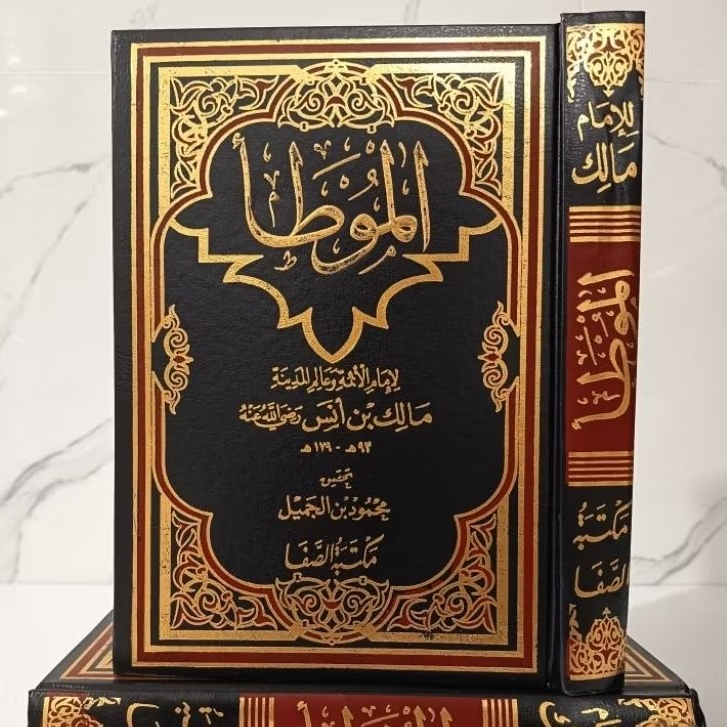 الموطأ
لإمام الأئمة وعالم المدينة
مالك بن أنس رضي الله عنه
٩٣هـ - ١٧٩هـ
تحقيق
محمود بن الجميل
مكتبة الصفا
للإمام
مالك
الموطأ
مكتبة
الصفا
الموطأ